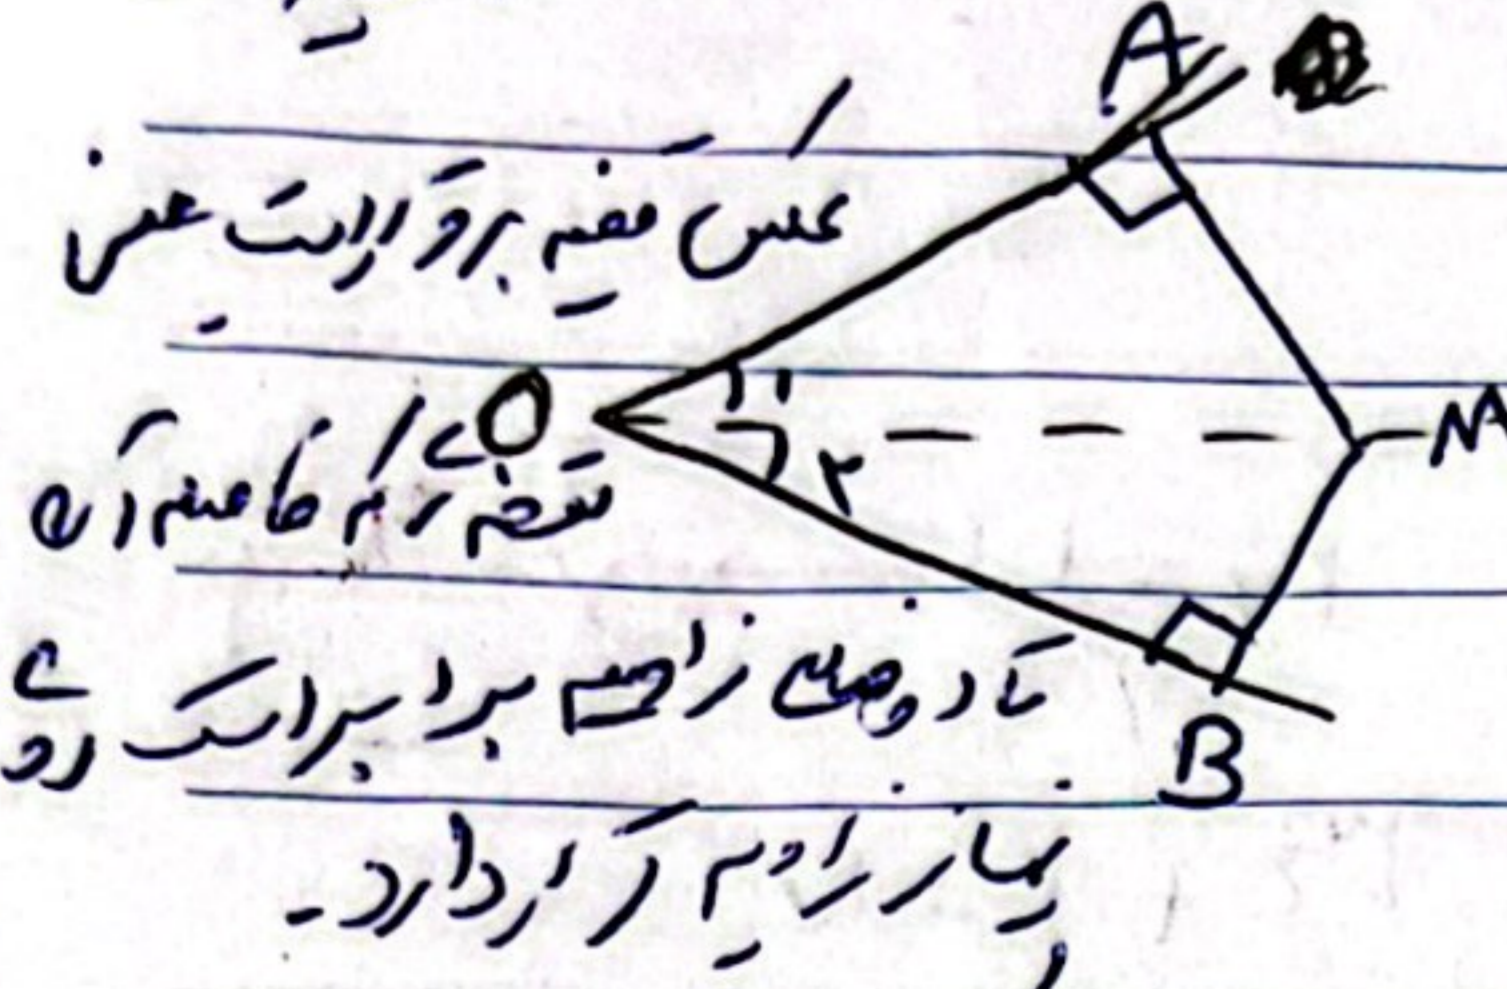 A
عکس قضیه برقرار است یعنی
O
۱
M
نقطه‌ی که فاصله آن
۲
تا دو ضلع زاویه برابر است روی
B
نیمساز زاویه قرار دارد.